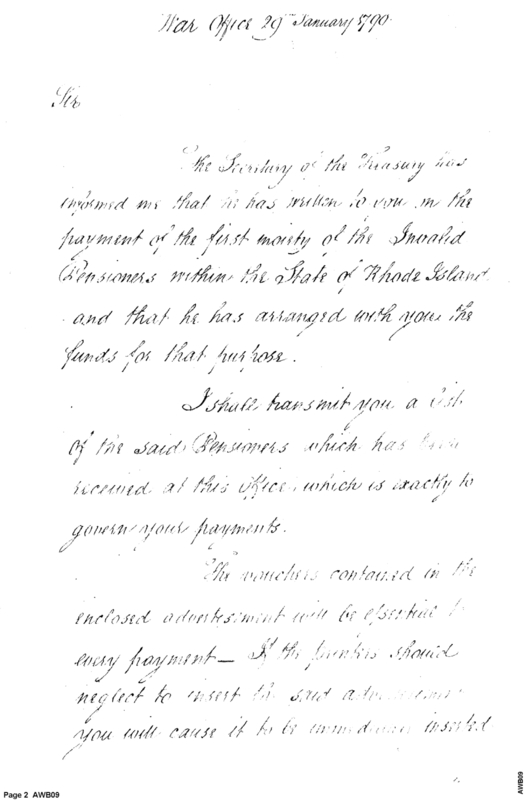 War Office 29th January 1790.
Sir
The Secretary of the Treasury has
informed me that he has written to you on the
payment of the first moiety of the Invalid
Pensioners within the State of Rhode Island
and that he has arranged with you the
funds for that purpose.
I shall transmit you a List
of the said Pensioners which has been
received at this office, which is exactly to
govern your payments.
The vouchers contained in the
enclosed advertisement will be essential to
every payment_ If the printers should
neglect to insert the said
you will cause it to be inserted
Page 2 AWB09
AWB09